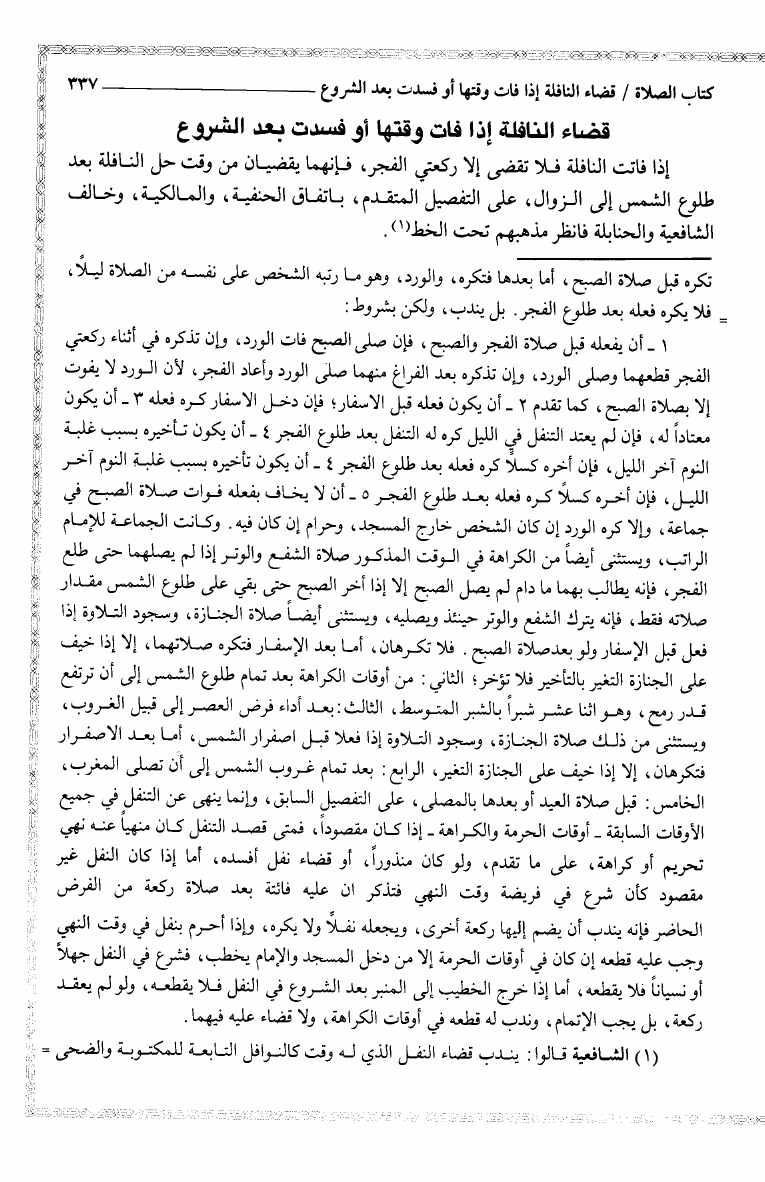 كتاب الصلاة / قضاء النافلة إذا فات وقتها أو فسدت بعد الشروع ــــــــــــــــــــ ٣٣٧
قضاء النافلة إذا فات وقتها أو فسدت بعد الشروع
إذا فاتت النافلة فلا تقضى إلا ركعتي الفجر، فإنهما يقضيان من وقت حل النافلة بعد
طلوع الشمس إلى الزوال، على التفصيل المتقدم، باتفاق الحنفية، والمالكية، وخالف
الشافعية والحنابلة فانظر مذهبهم تحت الخط(١).
تكره قبل صلاة الصبح، أما بعدها فتكره، والورد، وهو ما رتبه الشخص على نفسه من الصلاة ليلاً،
= فلا يكره فعله بعد طلوع الفجر. بل يندب، ولكن بشروط:
١ ـ أن يفعله قبل صلاة الفجر والصبح، فإن صلى الصبح فات الورد، وإن تذكره في أثناء ركعتي
الفجر قطعهما وصلى الورد، وإن تذكره بعد الفراغ منهما صلى الورد وأعاد الفجر، لأن الورد لا يفوت
إلا بصلاة الصبح، كما تقدم ٢ ـ أن يكون فعله قبل الاسفار؛ فإن دخل الاسفار كره فعله ٣ ـ أن يكون
معتاداً له، فإن لم يعتد التنفل في الليل كره له التنفل بعد طلوع الفجر ٤ ـ أن يكون تأخيره بسبب غلبة
النوم آخر الليل، فإن أخره كسلاً كره فعله بعد طلوع الفجر ٤ ـ أن يكون تأخيره بسبب غلبة النوم آخر
الليل، فإن أخره كسلاً كره فعله بعد طلوع الفجر ٥ ـ أن لا يخاف بفعله فوات صلاة الصبح في
جماعة، وإلا كره الورد إن كان الشخص خارج المسجد، وحرام إن كان فيه. وكانت الجماعة للإمام
الراتب، ويستثنى أيضاً من الكراهة في الوقت المذكور صلاة الشفع والوتر إذا لم يصلهما حتى طلع
الفجر، فإنه يطالب بهما ما دام لم يصل الصبح إلا إذا أخر الصبح حتى بقي على طلوع الشمس مقدار
صلاته فقط، فإنه يترك الشفع والوتر حينئذ ويصليه، ويستثنى أيضاً صلاة الجنازة، وسجود التلاوة إذا
فعل قبل الإسفار ولو بعدصلاة الصبح. فلا تكرهان، أما بعد الإسفار فتكره صلاتهما، إلا إذا خيف
على الجنازة التغير بالتأخير فلا تؤخر؛ الثاني: من أوقات الكراهة بعد تمام طلوع الشمس إلى أن ترتفع
قدر رمح، وهو اثنا عشر شبراً بالشبر المتوسط، الثالث: بعد أداء فرض العصر إلى قبيل الغروب،
ويستثنى من ذلك صلاة الجنازة، وسجود التلاوة إذا فعلا قبل اصفرار الشمس، أما بعد الاصفرار
فتكرهان، إلا إذا خيف على الجنازة التغير، الرابع: بعد تمام غروب الشمس إلى أن تصلى المغرب،
الخامس: قبل صلاة العيد أو بعدها بالمصلى، على التفصيل السابق، وإنما ينهى عن التنفل في جميع
الأوقات السابقة ـ أوقات الحرمة والكراهة ـ إذا كان مقصوداً، فمتى قصد التنفل كان منهياً عنه نهي
تحريم أو كراهة، على ما تقدم، ولو كان منذوراً، أو قضاء نفل أفسده، أما إذا كان النفل غير
مقصود كأن شرع في فريضة وقت النهي فتذكر ان عليه فائتة بعد صلاة ركعة من الفرض
الحاضر فإنه يندب أن يضم إليها ركعة أخرى، ويجعله نفلاً ولا يكره، وإذا أحرم بنفل في وقت النهي
وجب عليه قطعه إن كان في أوقات الحرمة إلا من دخل المسجد والإمام يخطب، فشرع في النفل جهلاً
أو نسياناً فلا يقطعه، أما إذا خرج الخطيب إلى المنبر بعد الشروع في النفل فلا يقطعه، ولو لم يعقد
ركعة، بل يجب الإتمام، وندب له قطعه في أوقات الكراهة، ولا قضاء عليه فيهما.
(١) الشافعية قالوا: يندب قضاء النفل الذي له وقت كالنوافل التابعة للمكتوبة والضحى =